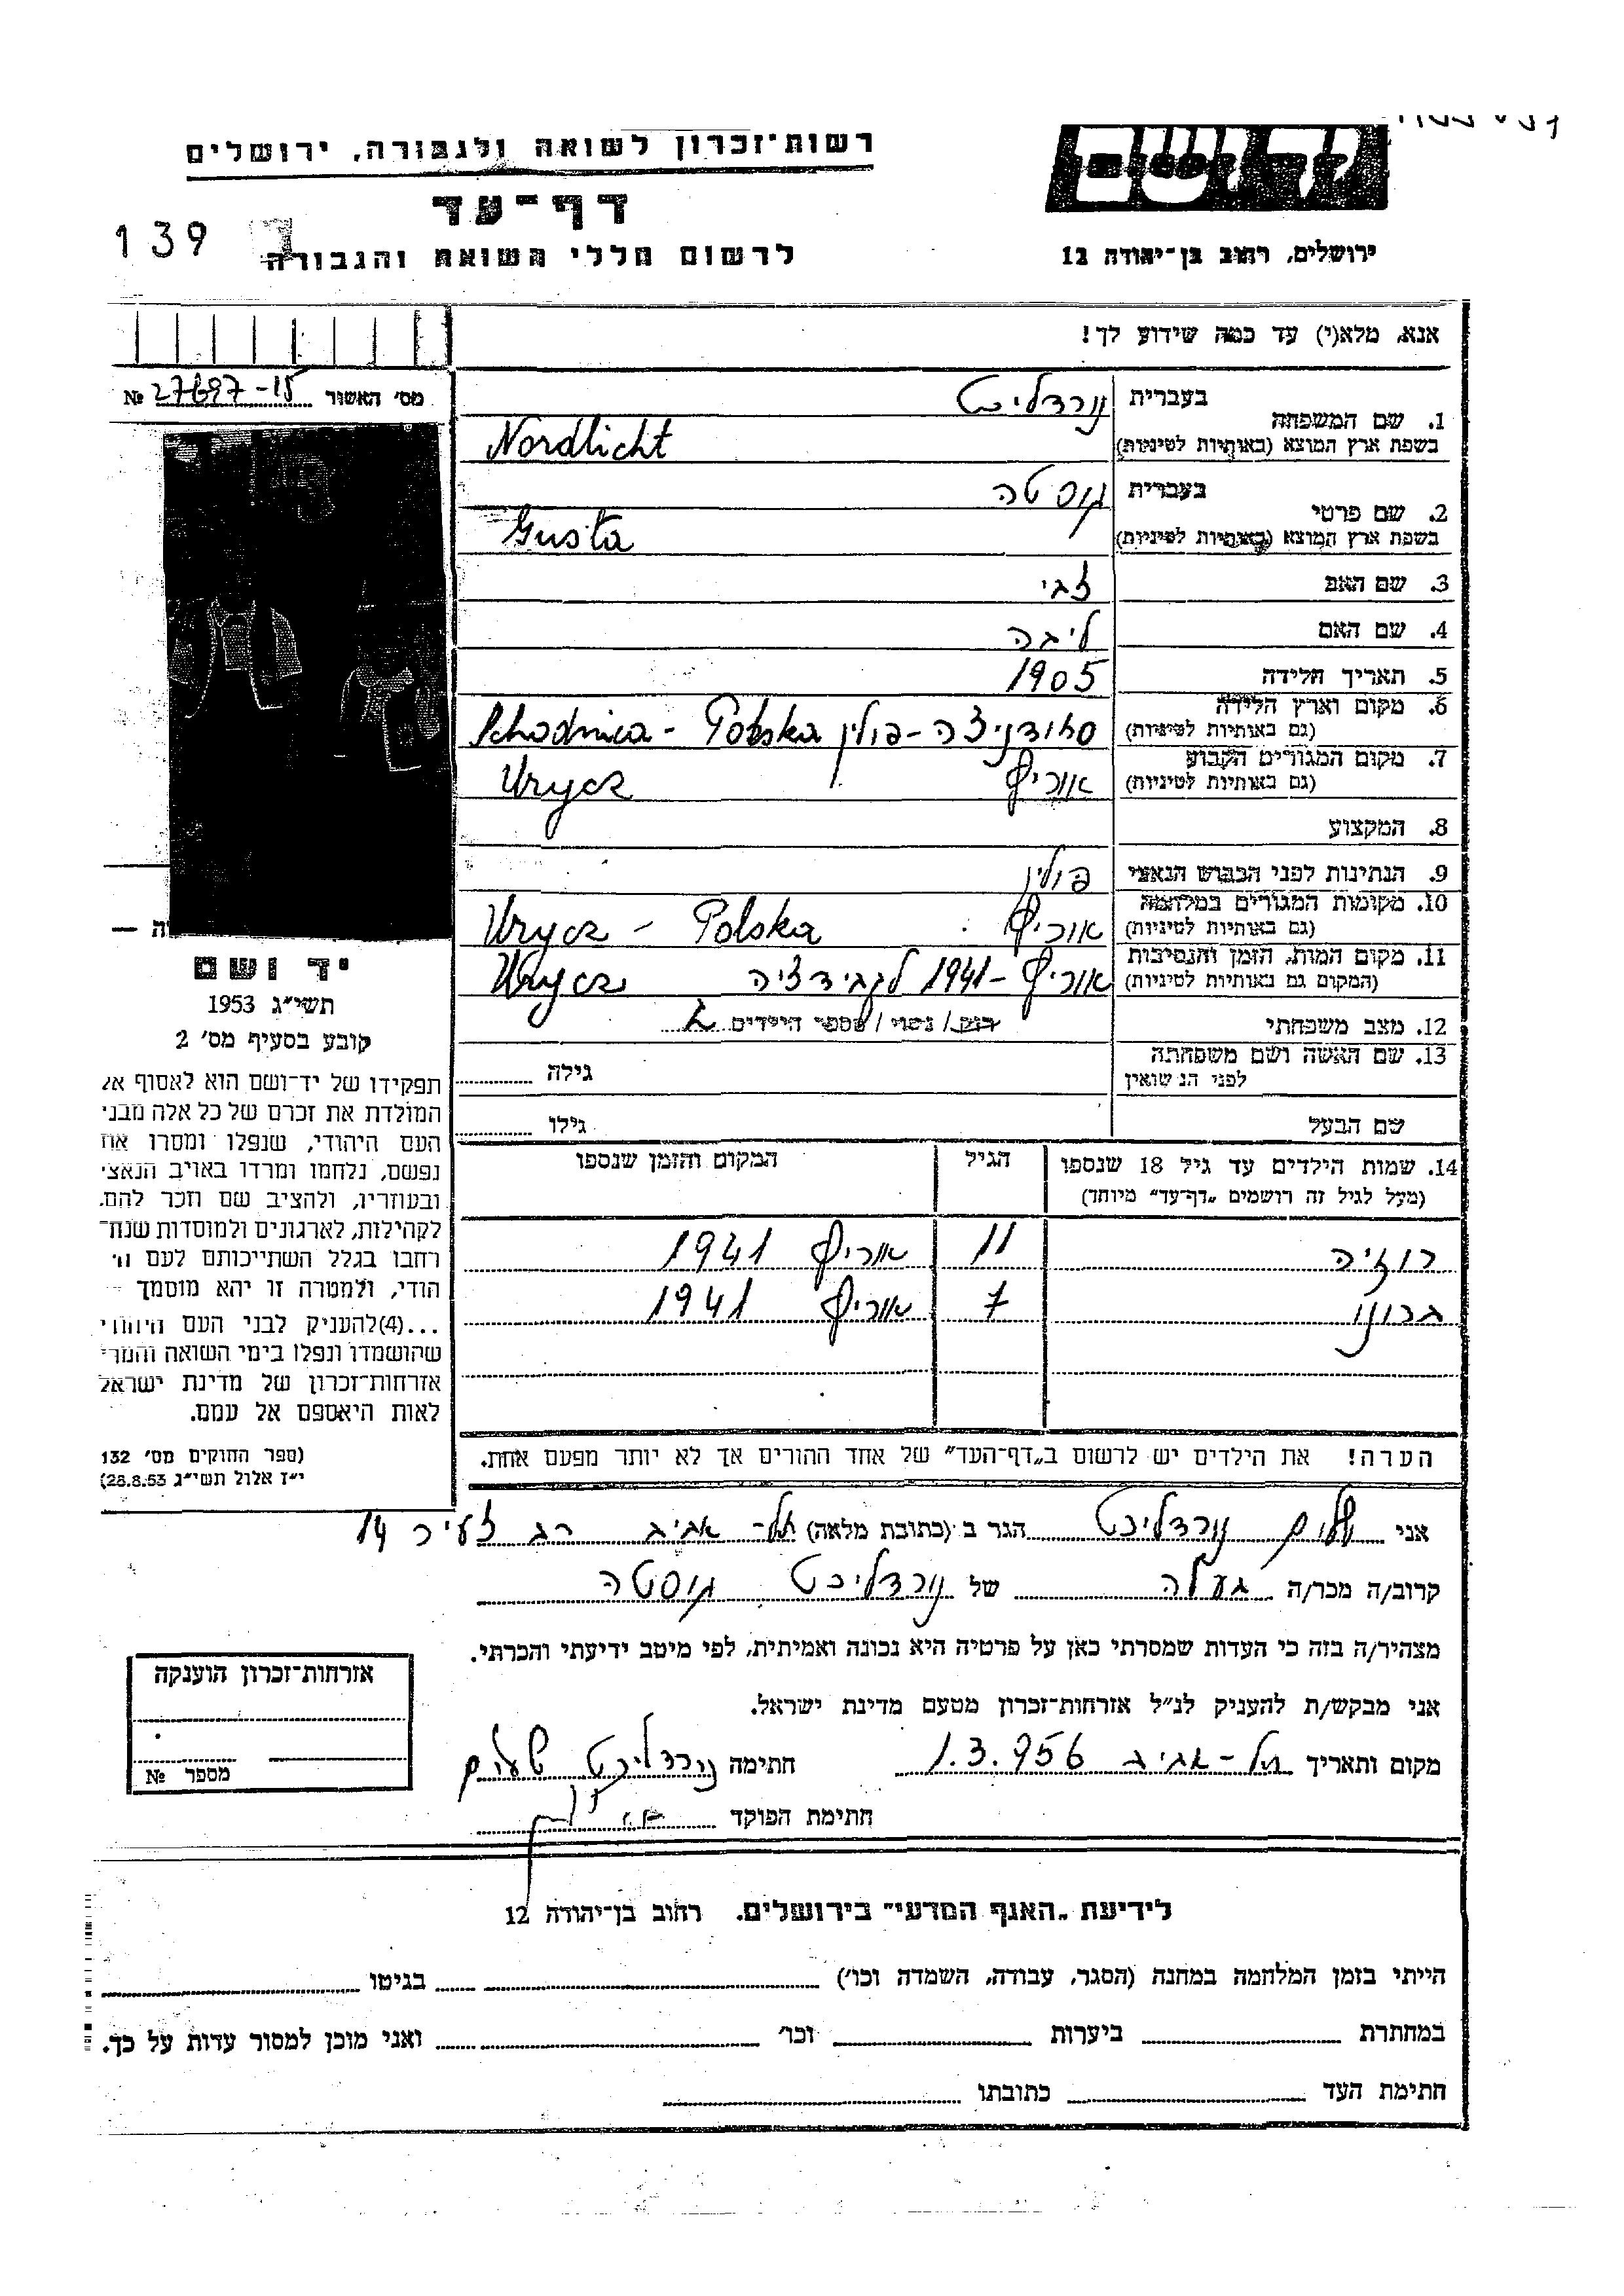 רשות־זכרון לשואה ולגבורה, ירושלים
דף־עד
לרשום חללי השואה והגבורה
139
ירושלים, רחוב בן־יהודה 12
אנא, מלא(י) עד כמה שידוע לך!
מס׳ האשור 27697-15 №
1. שם המשפחה
בעברית נורדליכט
בשפת ארץ המוצא (באותיות לטיניות) Nordlicht
2. שם פרטי
בעברית גוסטה
בשפת ארץ המוצא (באותיות לטיניות) Gusta
3. שם האב צבי
4. שם האם ליבה
5. תאריך הלידה 1905
6. מקום וארץ הלידה
(גם באותיות לטיניות) סחודניצה - פולין Schodnica - Polska
7. מקום המגורים הקבוע
(גם באותיות לטיניות) אוריץ Urycz
8. המקצוע
9. הנתינות לפני הכבוש הנאצי פולין
10. מקומות המגורים במלחמה
(גם באותיות לטיניות) אוריץ Urycz - Polska
11. מקום המות, הזמן והנסיבות
(המקום גם באותיות לטיניות) אוריץ - 1941 לקבידציה Urycz
12. מצב משפחתי רווק/ נשוי/ מספר הילדים 2
13. שם האשה ושם משפחתה
לפני הנשואין
גילה
שם הבעל גילו
14. שמות הילדים עד גיל 18 שנספו
(מעל לגיל זה רושמים „דף־עד״ מיוחד)
הגיל
המקום והזמן שנספו
רוזיה 11 אוריץ 1941
ברונו 7 אוריץ 1941
הערה! את הילדים יש לרשום ב„דף־העד״ של אחד ההורים אך לא יותר מפעם אחת.
יד ושם
תשי״ג 1953
קובע בסעיף מס׳ 2
תפקידו של יד־ושם הוא לאסוף אל
המולדת את זכרם של כל אלה מבני
העם היהודי, שנפלו ומסרו את
נפשם, נלחמו ומרדו באויב הנאצי
ובעוזריו, ולהציב שם וזכר להם,
לקהילות, לארגונים ולמוסדות שנח־
רבו בגלל השתייכותם לעם הי
הודי, ולמטרה זו יהא מוסמך –
...(4)להעניק לבני העם היהודי
שהושמדו ונפלו בימי השואה והמרי
אזרחות־זכרון של מדינת ישראל
לאות היאספם אל עמם.
(ספר החוקים מס׳ 132
י״ז אלול תשי״ג 28.8.53)
אני שלום נורדליכט הגר ב (כתובת מלאה) תל-אביב רב צעיר 14
קרוב/ה מכר/ה בעלה של נורדליכט גוסטה
מצהיר/ה בזה כי העדות שמסרתי כאן על פרטיה היא נכונה ואמיתית, לפי מיטב ידיעתי והכרתי.
אני מבקש/ת להעניק לנ״ל אזרחות־זכרון מטעם מדינת ישראל.
מקום ותאריך תל-אביב 1.3.956 חתימה נורדליכט שלום
חתימת הפוקד
אזרחות־זכרון הוענקה
מספר №
לידיעת „האגף המדעי״ בירושלים, רחוב בן־יהודה 12
הייתי בזמן המלחמה במחנה (הסגר, עבודה, השמדה וכו׳) בגיטו
במחתרת ביערות וכו׳ ואני מוכן למסור עדות על כך.
חתימת העד כתובתו